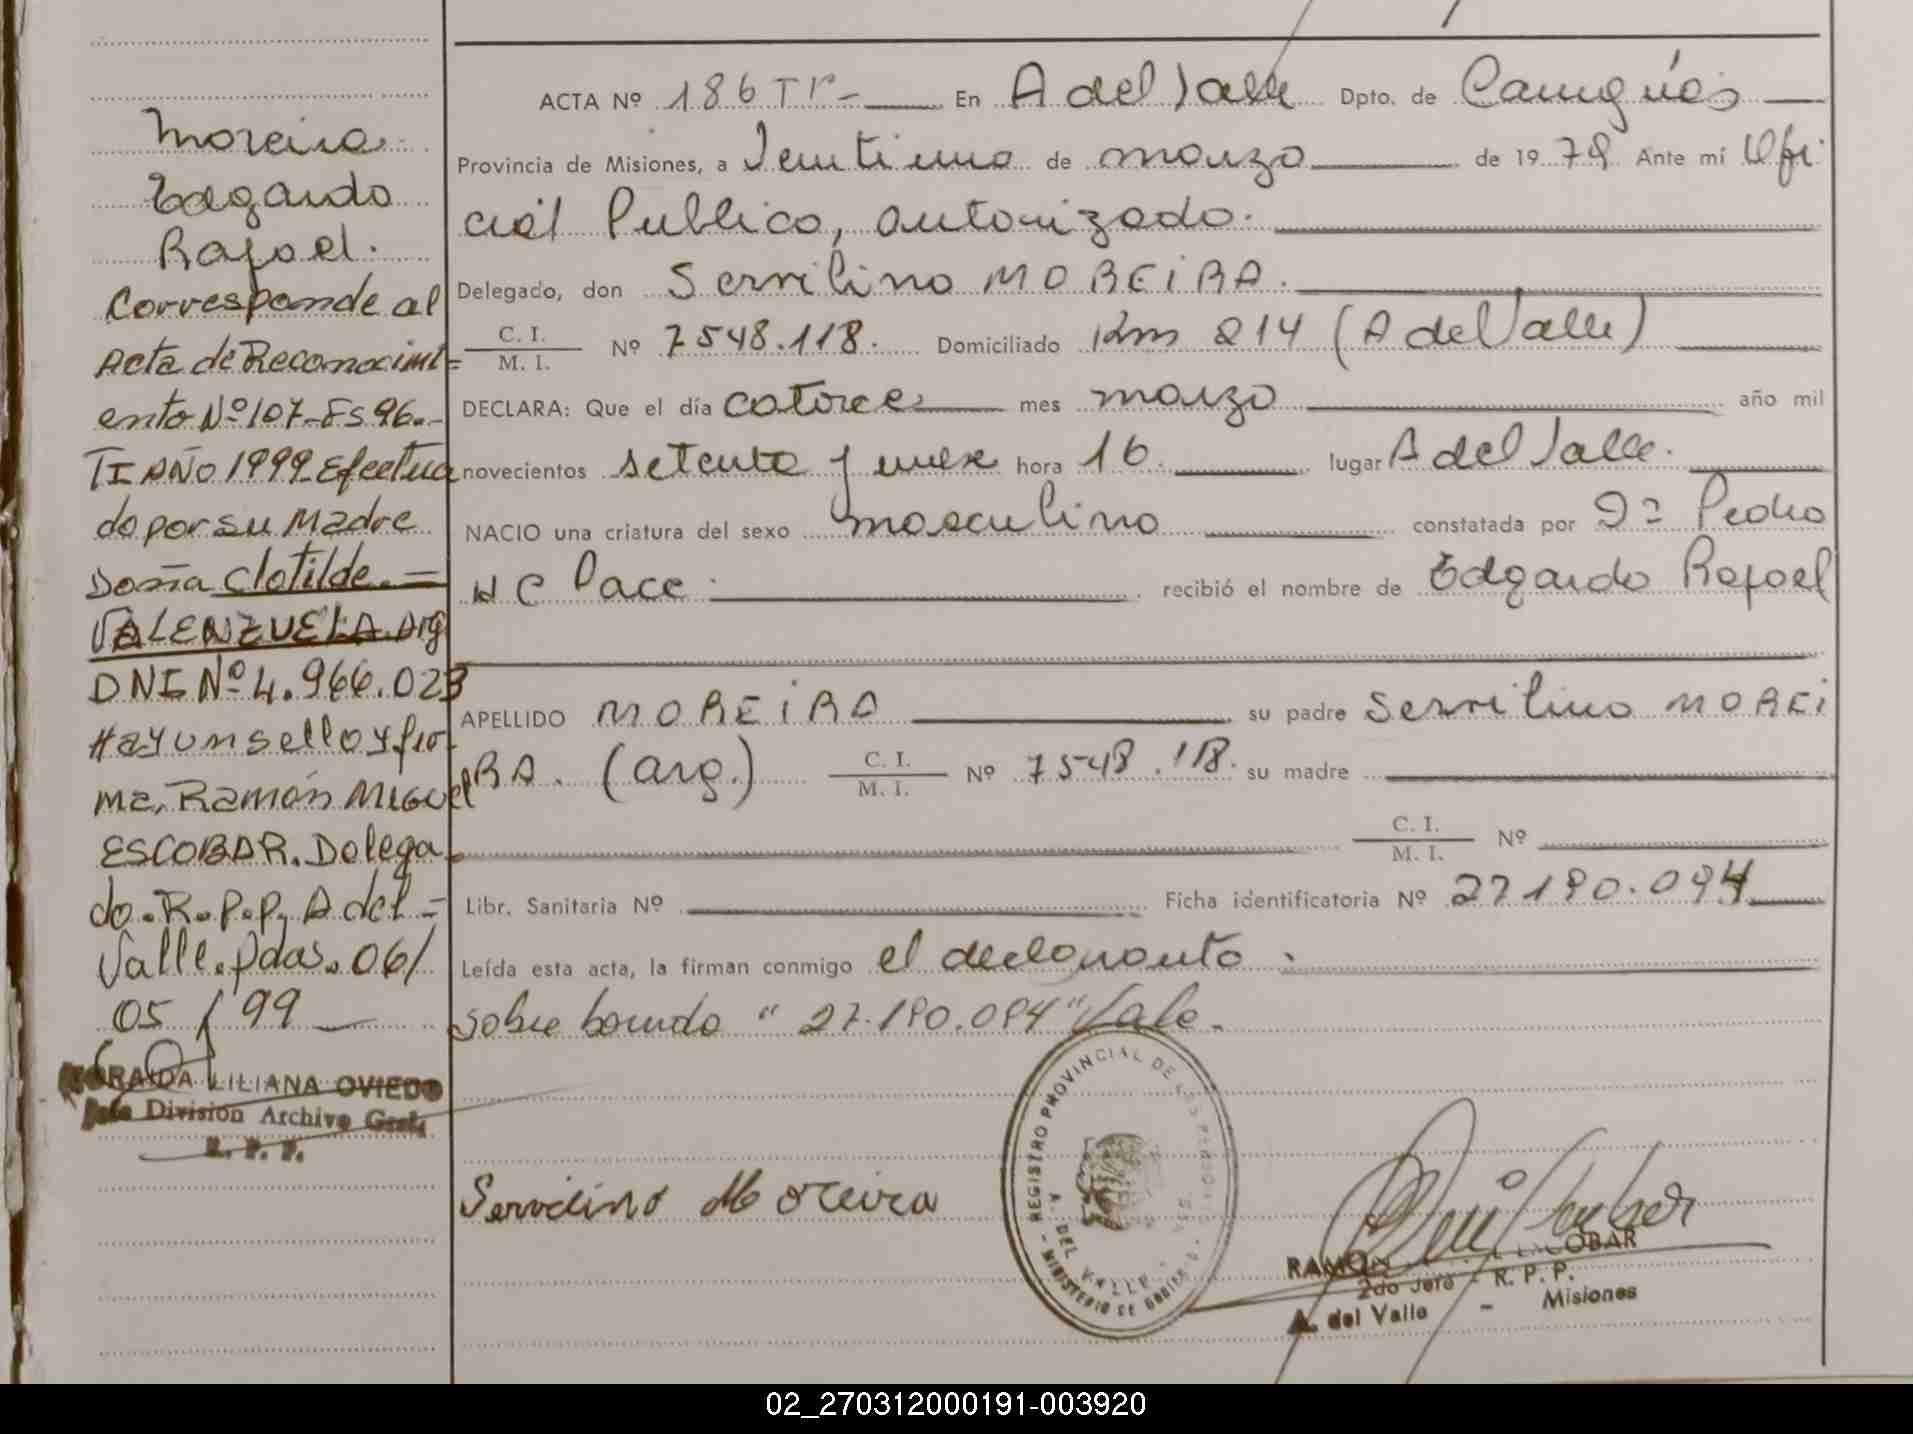 Moreira
Edgardo
Rafael.
Corresponde al
Acta de Reconocimi=
ento Nº 107-Fs 96.-
TI AÑO 1999 Efectua
do por su Madre
Doña Clotilde.=
VALENZUELA Arg
DNI Nº 4.966.023
Hay un sello y fir
ma, Ramón Miguel
ESCOBAR. Delega
do. R.P.P. A del=
Valle. Pdas. 06/
05/99
LILIANA OVIEDO
Jefe División Archivo Gral.
R. P. P.
ACTA Nº 186 Tº- En A del Valle Dpto. de Cainguás
Provincia de Misiones, a Veintiuno de marzo de 1979 Ante mí Ofi
cial Publico, autorizado.
Delegado, don Servilino MOREIRA.
C. I.
M. I. Nº 7548.118. Domiciliado Km 214 (A del Valle)
DECLARA: Que el día catorce mes marzo año mil
novecientos setenta y nueve hora 16 lugar A del Valle.
NACIO una criatura del sexo masculino constatada por Dº Pedro
H C Pace. recibió el nombre de Edgardo Rafael
APELLIDO MOREIRA su padre Servilino MOREI
RA. (arg.) C. I.
M. I. Nº 7548.118. su madre
C. I.
M. I. Nº
Libr. Sanitaria Nº Ficha identificatoria Nº 27190.094
Leída esta acta, la firman conmigo el declarante.
Sobre borrado "27.190.094" Vale.
REGISTRO PROVINCIAL DE LAS PERSONAS
A. DEL VALLE
MINISTERIO DE GOBIERNO
Servilino Moreira
RAMON ESCOBAR
2do Jefe - R. P. P.
A. del Valle - Misiones
02_270312000191-003920